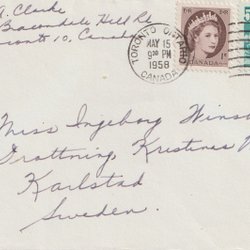 A. Clarke
Bracondale Hill Rd
oronto 10, Canada
TORONTO ONTARIO
MAY 15
9 PM
1958
CANADA
CANADA
Miss Ingeborg Winso
Drottning Kristinas
Karlstad
Sweden.